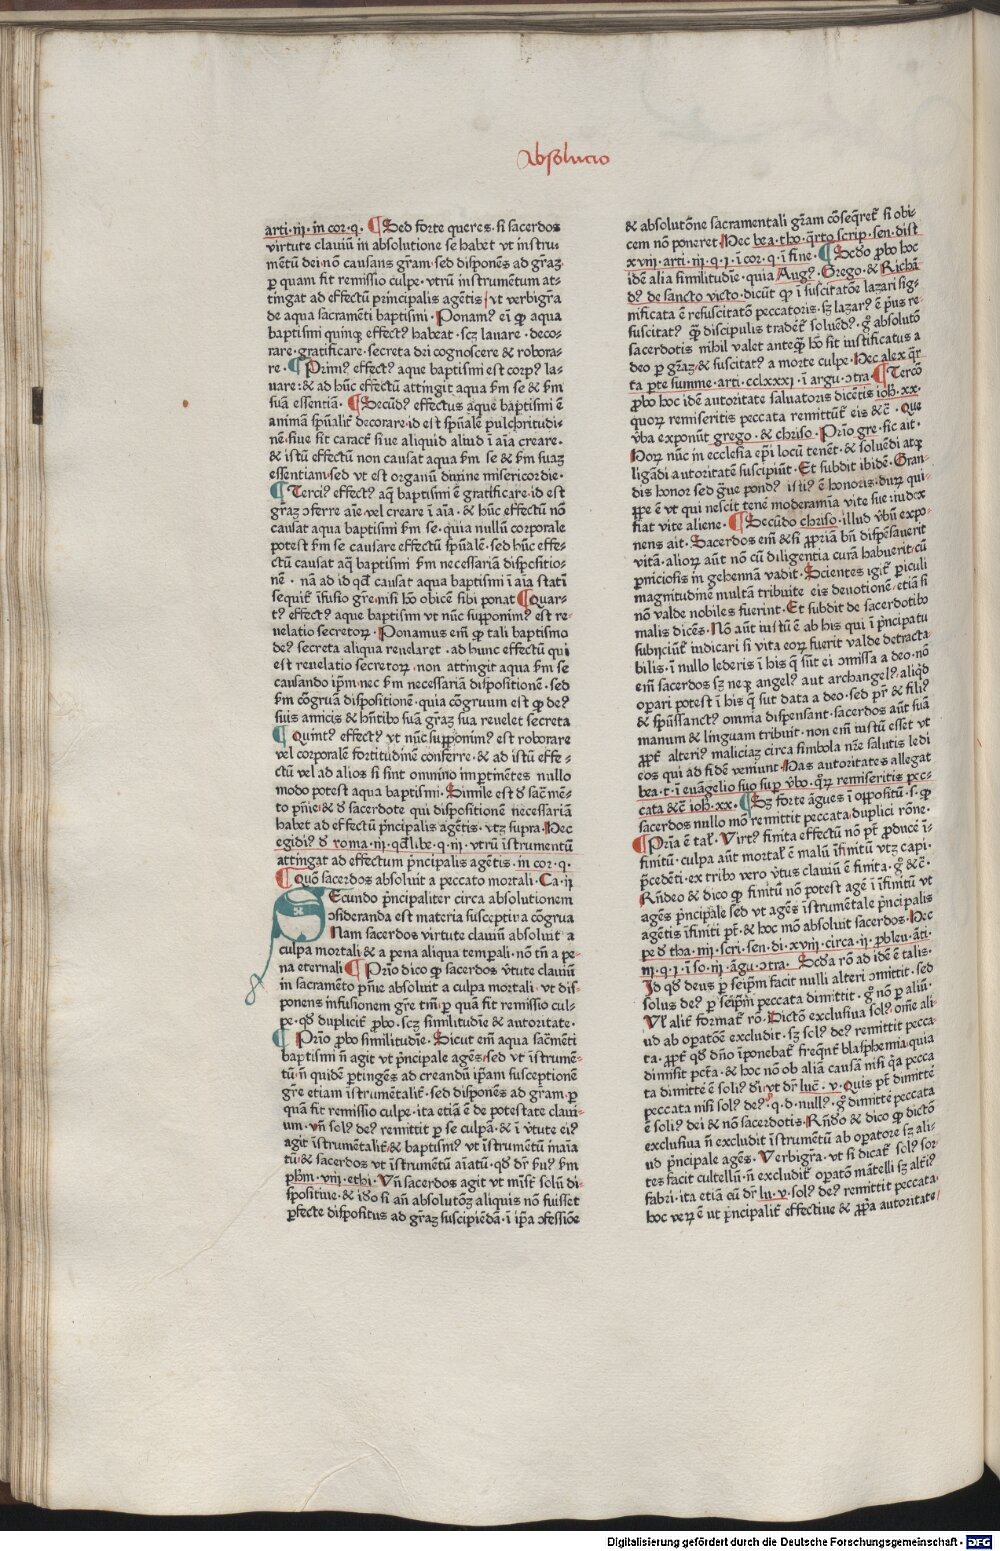 absolucio
arti·iii·in cor·q· ¶Sed forte queres·si sacerdos
virtute clauiū in absolutione se habet vt instru
mētū dei·nō causans gr̄am·sed disponēs ad gr̄aꝫ
ꝑ quam fit remissio culpe·vtrū instrumētum at-
tingat ad effectū principalis agētis/vt verbigr̄a
de aqua sacramēti baptismi·Ponamꝰ eī ꝙ aqua
baptismi quinqꝫ effectꝰ habeat·scꝫ lauare·deco-
rare·gratificare·secreta dei cognoscere & robora-
re·¶Primꝰ effectꝰ aque baptismi est corpꝰ la-
uare:& ad hūc effectū attingit aqua ẜm se & ẜm
suā essentiā·¶Secūdꝰ effectus aque baptismi ē
animā spūalit̄ decorare·id est spūalē pulchritudi-
nē·siue sit caractꝰ siue aliquid aliud ī aīa creare·
& istū effectū non causat aqua ẜm se & ẜm suaꝫ
essentiam·sed vt est organū diuine misericordie·
¶Terciꝰ effectꝰ aq̄ baptismi ē gratificare·id est
gr̄aꝫ ɔferre aīe·vel creare ī aīa·& hūc effectū nō
causat aqua baptismi ẜm se·quia nullū corporale
potest ẜm se causare effectū spūalē·sed hūc effe-
ctū causat aq̄ baptismi ẜm necessariā dispositio-
nē·nā ad id qđ causat aqua baptismi ī aīa statī
sequit̄ īfusio gr̄e·nisi hō obicē sibi ponat ¶Quar-
tꝰ effectꝰ aque baptismi vt nūc supponimꝰ est re-
uelatio secretoꝝ·Ponamus em̄ ꝙ tali baptismo
deꝰ secreta aliqua reuelaret·ad hunc effectū qui
est reuelatio secretoꝝ·non attingit aqua ẜm se
causando ip̄m·nec ẜm necessariā dispositionē·sed
ẜm cōgruā dispositionē·quia cōgruum est ꝙ deꝰ
suis amicis & hn̄tibꝰ suā gr̄aꝫ sua reuelet secreta
¶Quintꝰ effectꝰ vt nūc supponimꝰ est roborare
vel corporalē fortitudinē conferre·& ad istū effe-
ctū vel ad alios si sint omnino imꝑtinētes nullo
modo potest aqua baptismi·Simile est đ sac̄mē-
to pn̄ie·& đ sacerdote qui dispositionē necessariā
habet ad effectū pn̄cipalis agētis·vtꝫ supra·Hec
egidiꝰ đ roma·iii·qđlibe·q·iii·vtrū īstrumentū
attingat ad effectum pn̄cipalis agētis·in cor·q·
¶Quō sacerdos absoluit a peccato mortali·Ca·ii
SEcundo pn̄cipaliter circa absolutionem
ɔsideranda est materia susceptiua cōgrua
Nam sacerdos virtute clauiū absoluit a
culpa mortali & a pena aliqua tempali·nō tn̄ a pe-
na eternali ¶Prīo dico ꝙ sacerdos v̄tute clauiū
in sacramēto pn̄ie absoluit a culpa mortali·vt dis-
ponens infusionem gr̄e tm̄·ꝑ quā fit remissio cul-
pe·qđ duplicit̄ ꝓbo·scꝫ similitudīe & autoritate·
¶Prīo ꝓbo similitudīe·Sicut em̄ aqua sac̄mēti
baptismi n̄ agit vt pn̄cipale agēs/sed vt īstrumē-
tū·n̄ quidē ꝑtingēs ad creandū ip̄am susceptionē
gr̄e etiam īstrumētalit̄·sed disponēs ad gr̄am·ꝑ
quā fit remissio culpe·ita etiā ē de potestate claui-
um·vn̄ solꝰ deꝰ remittit ꝑ se culpā·& ī v̄tute eiꝰ
agit īstrumētalit̄·& baptismꝰ vt īstrumētū īnaīa
tū·& sacerdos vt īstrumētū aīatū·qđ dr̄ ẜuꝰ ẜm
ph̄m·viii·ethi·Vn̄ sacerdos agit vt mīst̄ solū di-
spositiue·& iđo si an̄ absolutōꝫ aliquis nō fuisset
ꝑfecte dispositus ad gr̄aꝫ suscipiēdā·ī ip̄a ɔfessiōe
& absolutōne sacramentali gr̄am cōseq̄ret̄ si obi-
cem nō poneret·Hec bea·tho·q̄rto scrip·sen·dist
xviii·arti·iii·q·i·ī cor·q·ī fine·¶Scđo ꝓbo hoc
idē alia similitudīe·quia Augꝰ·Grego·& Richar̄
dꝰ de sancto victo·dicūt ꝙ ī suscitatōe lazari sig-
nificata ē resuscitatō peccatoris·sꝫ lazarꝰ ē pn̄us re-
suscitatꝰ ꝙ̄ discipulis tradet̄ soluēdꝰ·ḡ absolutō
sacerdotis nihil valet anteq̄ꝫ hō sit iustificatus a
deo ꝑ gr̄aꝫ·& suscitatꝰ a morte culpe·Hec alex q̄r
ta ꝑte summe·arti·cclxxxi·ī argu·ɔtra ¶Tercō
ꝓbo hoc idē autoritate saluatoris dicētis ioh̄·xx·
quoꝝ remiseritis peccata remittūt̄ eis &c̄·Que
v̄ba exponūt grego·& chriso·Prīo gre·sic ait·
Hoꝝ nūc in ecclesia ep̄i locū tenēt·& soluēdi atqꝫ
ligādi autoritatē suscipiūt·Et subdit ibidē·Gran-
dis honor sed gr̄ue pondꝰ istiꝰ ē honoris·duꝝ qui-
ppe ē vt qui nescit tenē moderamīa vite sue·iudex
fiat vite aliene·¶Secūdo chriso·illud v̄bū expo-
nens ait·Sacerdos em̄ &si ꝓpriā bn̄ dispēsauerit
vitā·alioꝝ aūt nō cū diligentia curā habuerit·cū
ꝑniciosis in gehennā vadit·Scientes igit̄ ꝑiculi
magnitudinē multā tribuite eis deuotionē·etiā si
nō valde nobiles fuerint·Et subdit de sacerdotibꝰ
malis dicēs·Nō aūt iustū ē ab his qui ī pn̄cipatu
subijciūt̄ iudicari si vita eoꝝ fuerit valde detracta
bilis·ī nullo lederis ī his q̄ sūt ei ɔmissa a deo·nō
em̄ sacerdos sꝫ neqꝫ angelꝰ aut archangelꝰ·aliqđ
oꝑari potest ī his q̄ sūt data a deo·sed pr̄ & filiꝰ
& spūssanctꝰ omnia dispensant·sacerdos aūt suā
manum & linguam tribuit·non em̄ iustū esset vt
ꝓpt̄ alteriꝰ maliciaꝫ circa simbola nr̄e salutis ledi
eos qui ad fidē veniunt·Has autoritates allegat
bea·t·ī euāgelio suo suꝑ v̄bo·q̄ꝝ remiseritis pec-
cata &c̄ ioh̄·xx·¶Sꝫ forte āgues ī oppositū·s·ꝙ
sacerdos nullo mō remittit peccata/duplici rōne·
¶Prīa ē tal̄·Virtꝰ finita effectū nō pt̄ ꝓduce ī-
finitū·culpa aūt mortal̄ ē malū īfinitū vtꝫ capi·
p̄cedēti·ex tribꝰ vero v̄tus clauiū ē finita·ḡ &c̄·
Rn̄deo & dico ꝙ finitū nō potest agē ī īfinitū vt
agēs pn̄cipale sed vt agēs īstrumētale pn̄cipalis
agētis īfiniti pt̄·& hoc mō absoluit sacerdos·Hec
pe đ tha·iiii·scri·sen·di·xviii·circa·ii·ꝓbleu·āti·
iii·q·i·ī so·iii·āgu·ɔtra·Scđa rō ad idē ē talis·
Id qđ deus ꝑ seip̄m facit nulli alteri ɔmittit·sed
solus deꝰ ꝑ seip̄m peccata dimittit·ḡ nō ꝑ aliū·
Vl̄ alit̄ format̄ rō·Dictō exclusiua solꝰ·om̄e ali-
ud ab oꝑatōe excludit·sꝫ solꝰ deꝰ remittit pecca-
ta·ꝓpt̄ qđ dn̄o īponebat̄ freq̄nt̄ blasphemia·quia
dimisit pctā·& hoc nō ob aliā causā nisi q̄a pecca
ta dimittē ē soliꝰ di·vt dr̄ luc̄·v·Quis pt̄ dimittē
peccata nisi solꝰ deꝰ·q·d·nullꝰ·ḡ dimittē peccata
ē soliꝰ dei & nō sacerdotis·Rn̄do & dico ꝙ dictō
exclusiua n̄ excludit īstrumētū ab oꝑatore sꝫ ali-
ud pn̄cipale agēs·Verbigr̄a·vt si dicat̄ solꝰ sor-
tes facit cultellū·n̄ excludit̄ oꝑatō mātelli sꝫ altiꝰ
fabri·ita etiā cū dr̄ lu·v·solꝰ deꝰ remittit peccata·
hoc veꝝ ē vt pn̄cipalit̄ effectiue & ꝓp̄a autoritate/
Digitalisierung gefördert durch die Deutsche Forschungsgemeinschaft - DFG